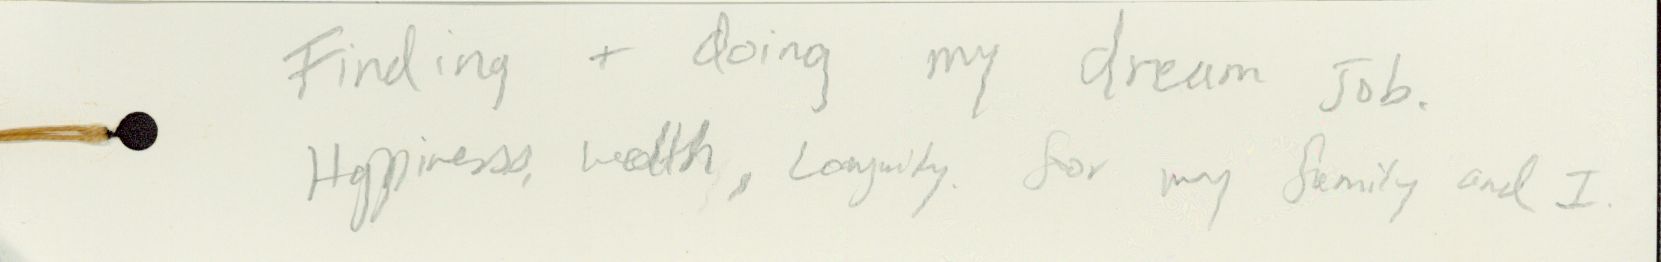 Finding + doing my dream Job.
Happiness, wealth, Longivity. for my family and I.